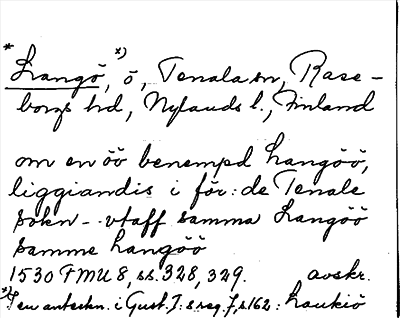 * Langö, *) ö, Tenala sn, Rase-
borgs hd, Nylands l., Finland
om en öö benempd hangöö,
liggiandis i för: de Tenale
sokn - vtaff samma Langöö
samme hangöö
1530 FMU 8, ss. 328, 329. avskr.
*) I en anteckn. i Gust. I:s reg. 7, s. 162: haukiö